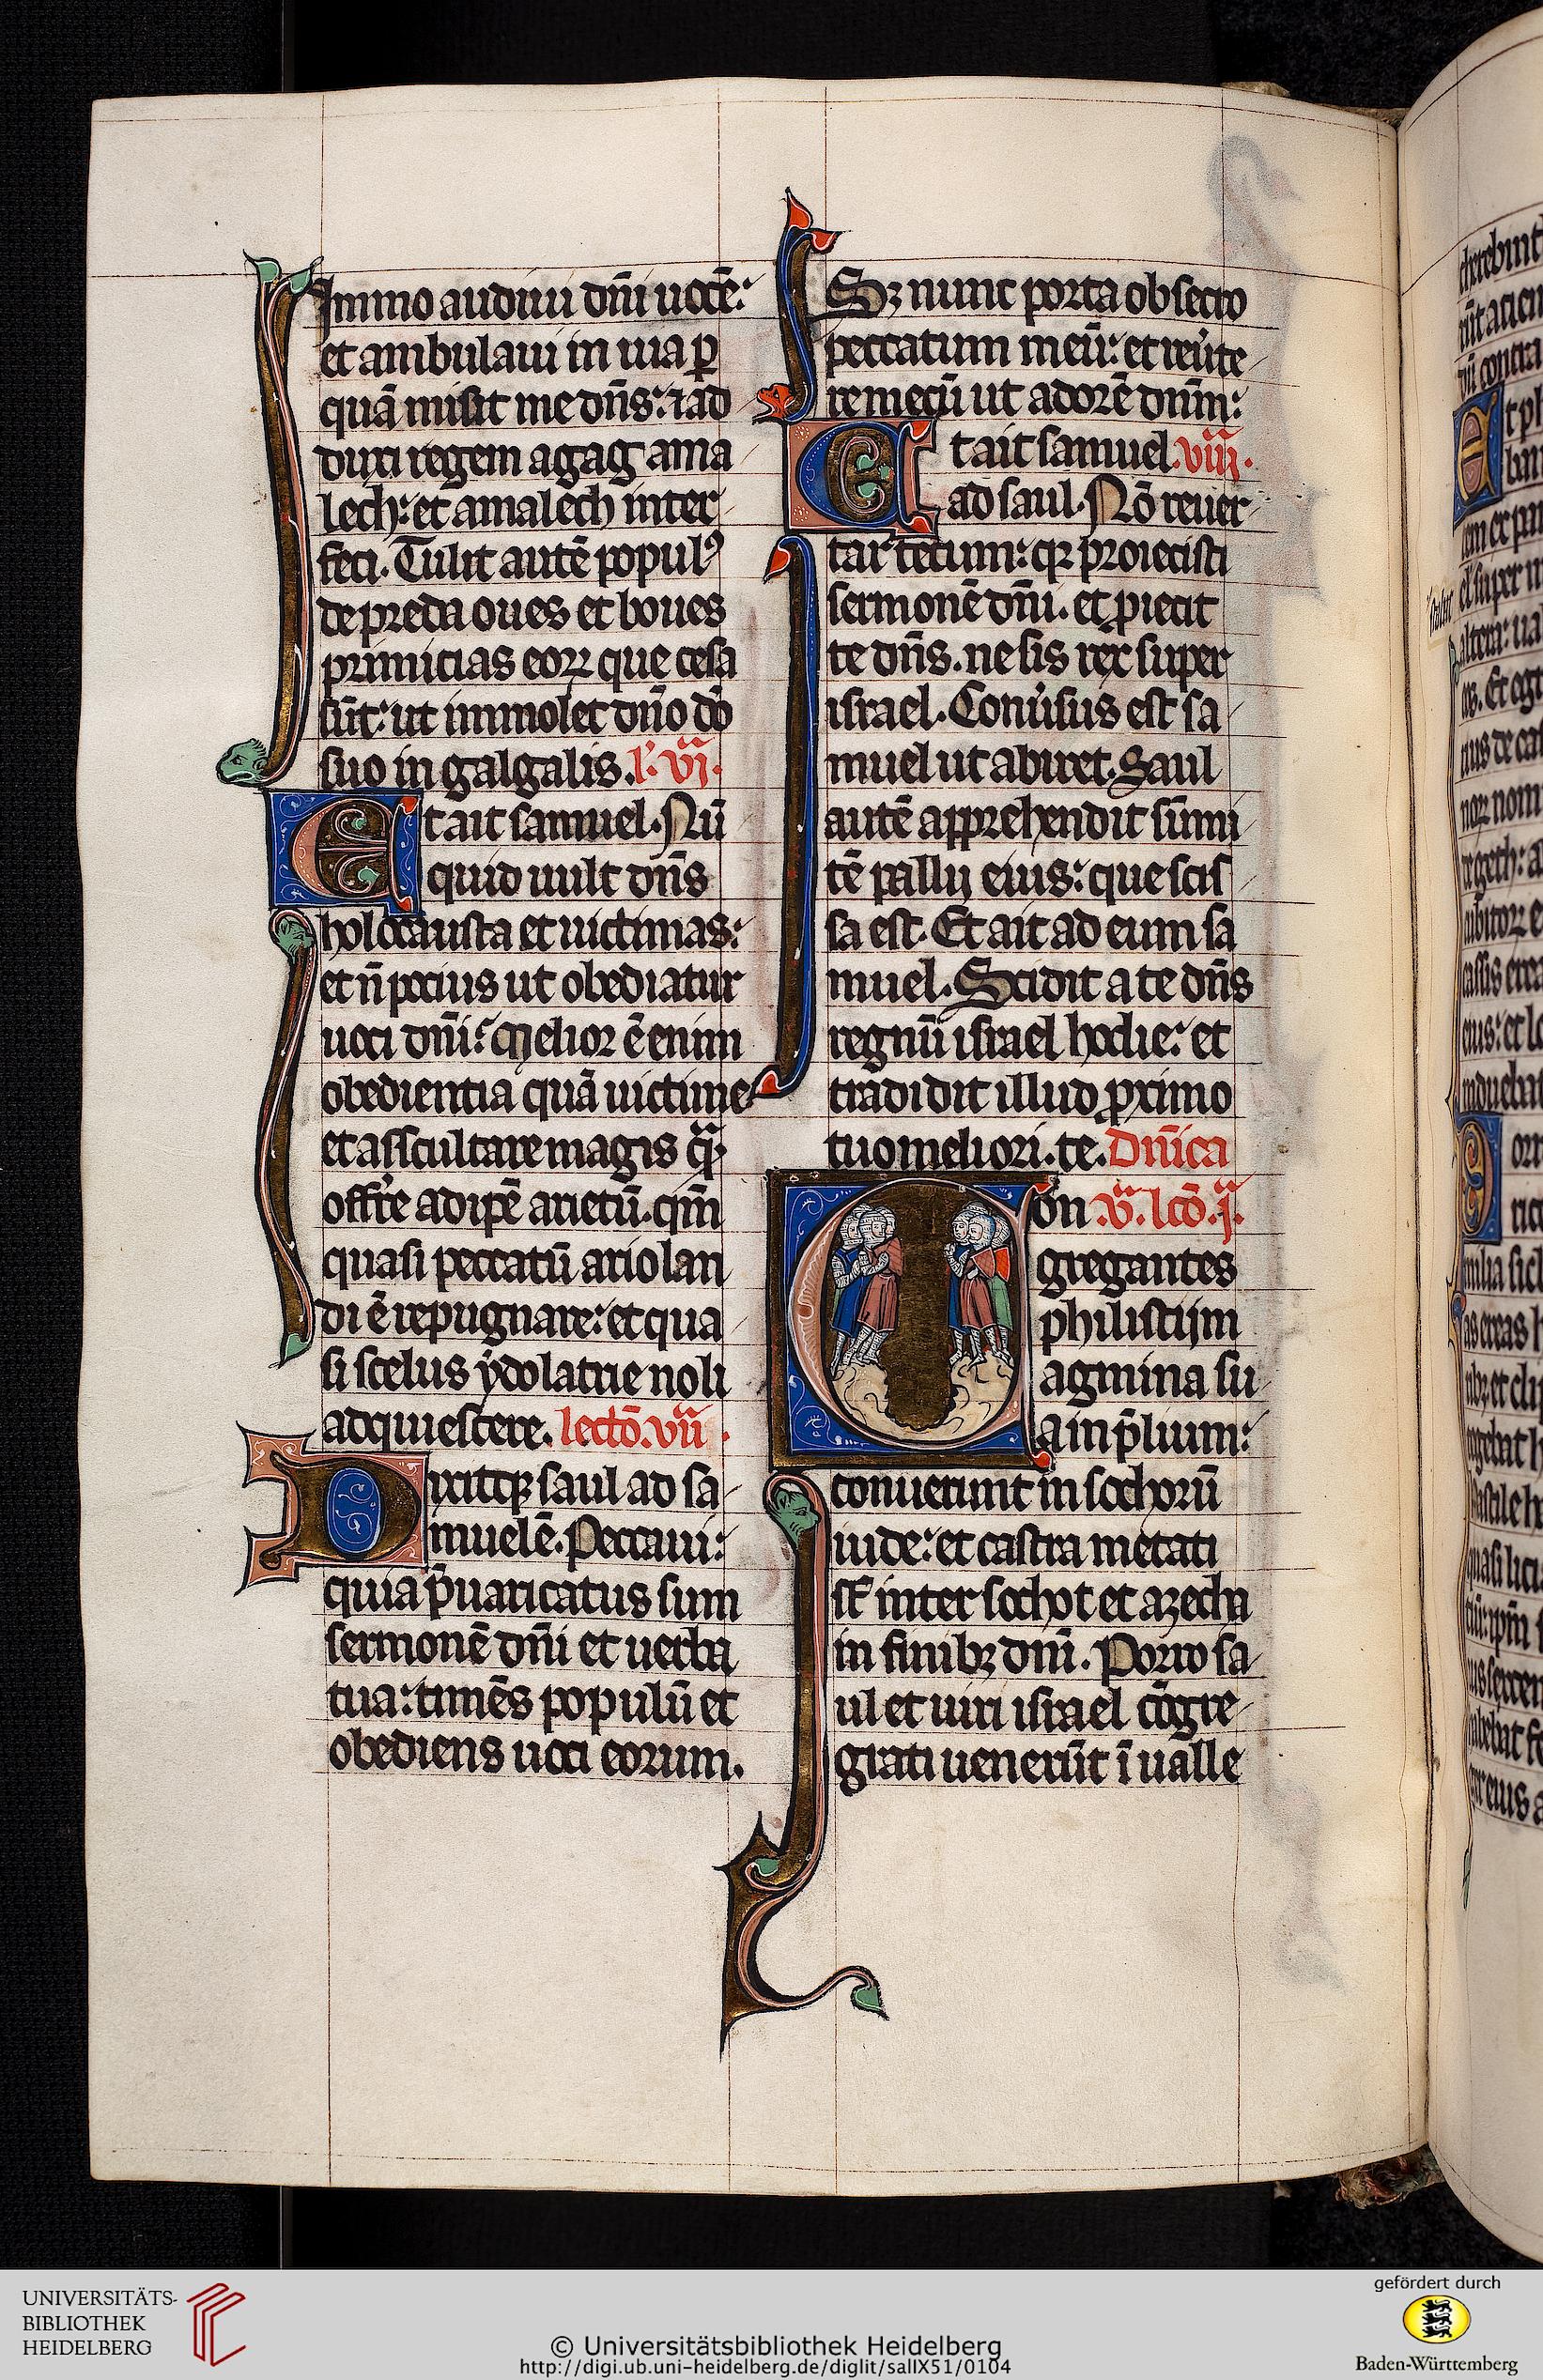 Immo audiui dn̄i uocē:
et ambulaui in uia ꝑ
quā misit me dn̄s: ⁊ ad
duxi regem agag ama
lech: et amalech inter
feci. Tulit autē populꝰ
de preda oues et boues
primicias eoꝝ que cesa
sūt: ut immolet dn̄o dō
suo in galgalis. l'. vi.
Et ait samuel. Nū
quid uult dn̄s
holocausta et uictimas:
et n̄ pocius ut obediatur
uoci dn̄i? Melior ē enim
obedientia quā uictime
et ascultare magis qͣ̄
offr̄e adipē arietū. qm̄
quasi peccatū ariolan
di ē repugnare: et qua
si scelus ydolatrie noli
adquiescere. lectō. vii.
Dixitqꝫ saul ad sa
muelē. Peccaui:
quia p̄uaricatus sum
sermonē dn̄i et uerba
tua: timēs populū et
obediens uoci eorum.
Sꝫ nunc porta obsecro
peccatum meū: et reu̾te
re mecū ut adorē dnm̄:
Et ait samuel. viii.
ad saul. Nō reuer
tar tecum: qꝛ proiecisti
sermonē dn̄i. et ꝓiecit
te dn̄s. ne sis rex super
israel. Conu̾sus est sa
muel ut abiret. Saul
autē apprehendit sūmi
tē pallij eius: que scis
sa est. Et ait ad eum sa
muel. Scidit a te dn̄s
regnū israel hodie: et
tradidit illud ꝓximo
tuo meliori. te. Dn̄ica
Con .v. lcō. i.
gregantes
philistijm
agmina su
a in p̄lium:
conuenerunt in sochorū
iude: et castra metati
sᵗ inter sochot et azecha
in finibꝫ dnm̄. Porro sa
ul et uiri israel cōgre
grati uenerūt ī ualle
UNIVERSITÄTS-
BIBLIOTHEK
HEIDELBERG
© Universitätsbibliothek Heidelberg
http://digi.ub.uni-heidelberg.de/diglit/salIX51/0104
gefördert durch
Baden-Württemberg